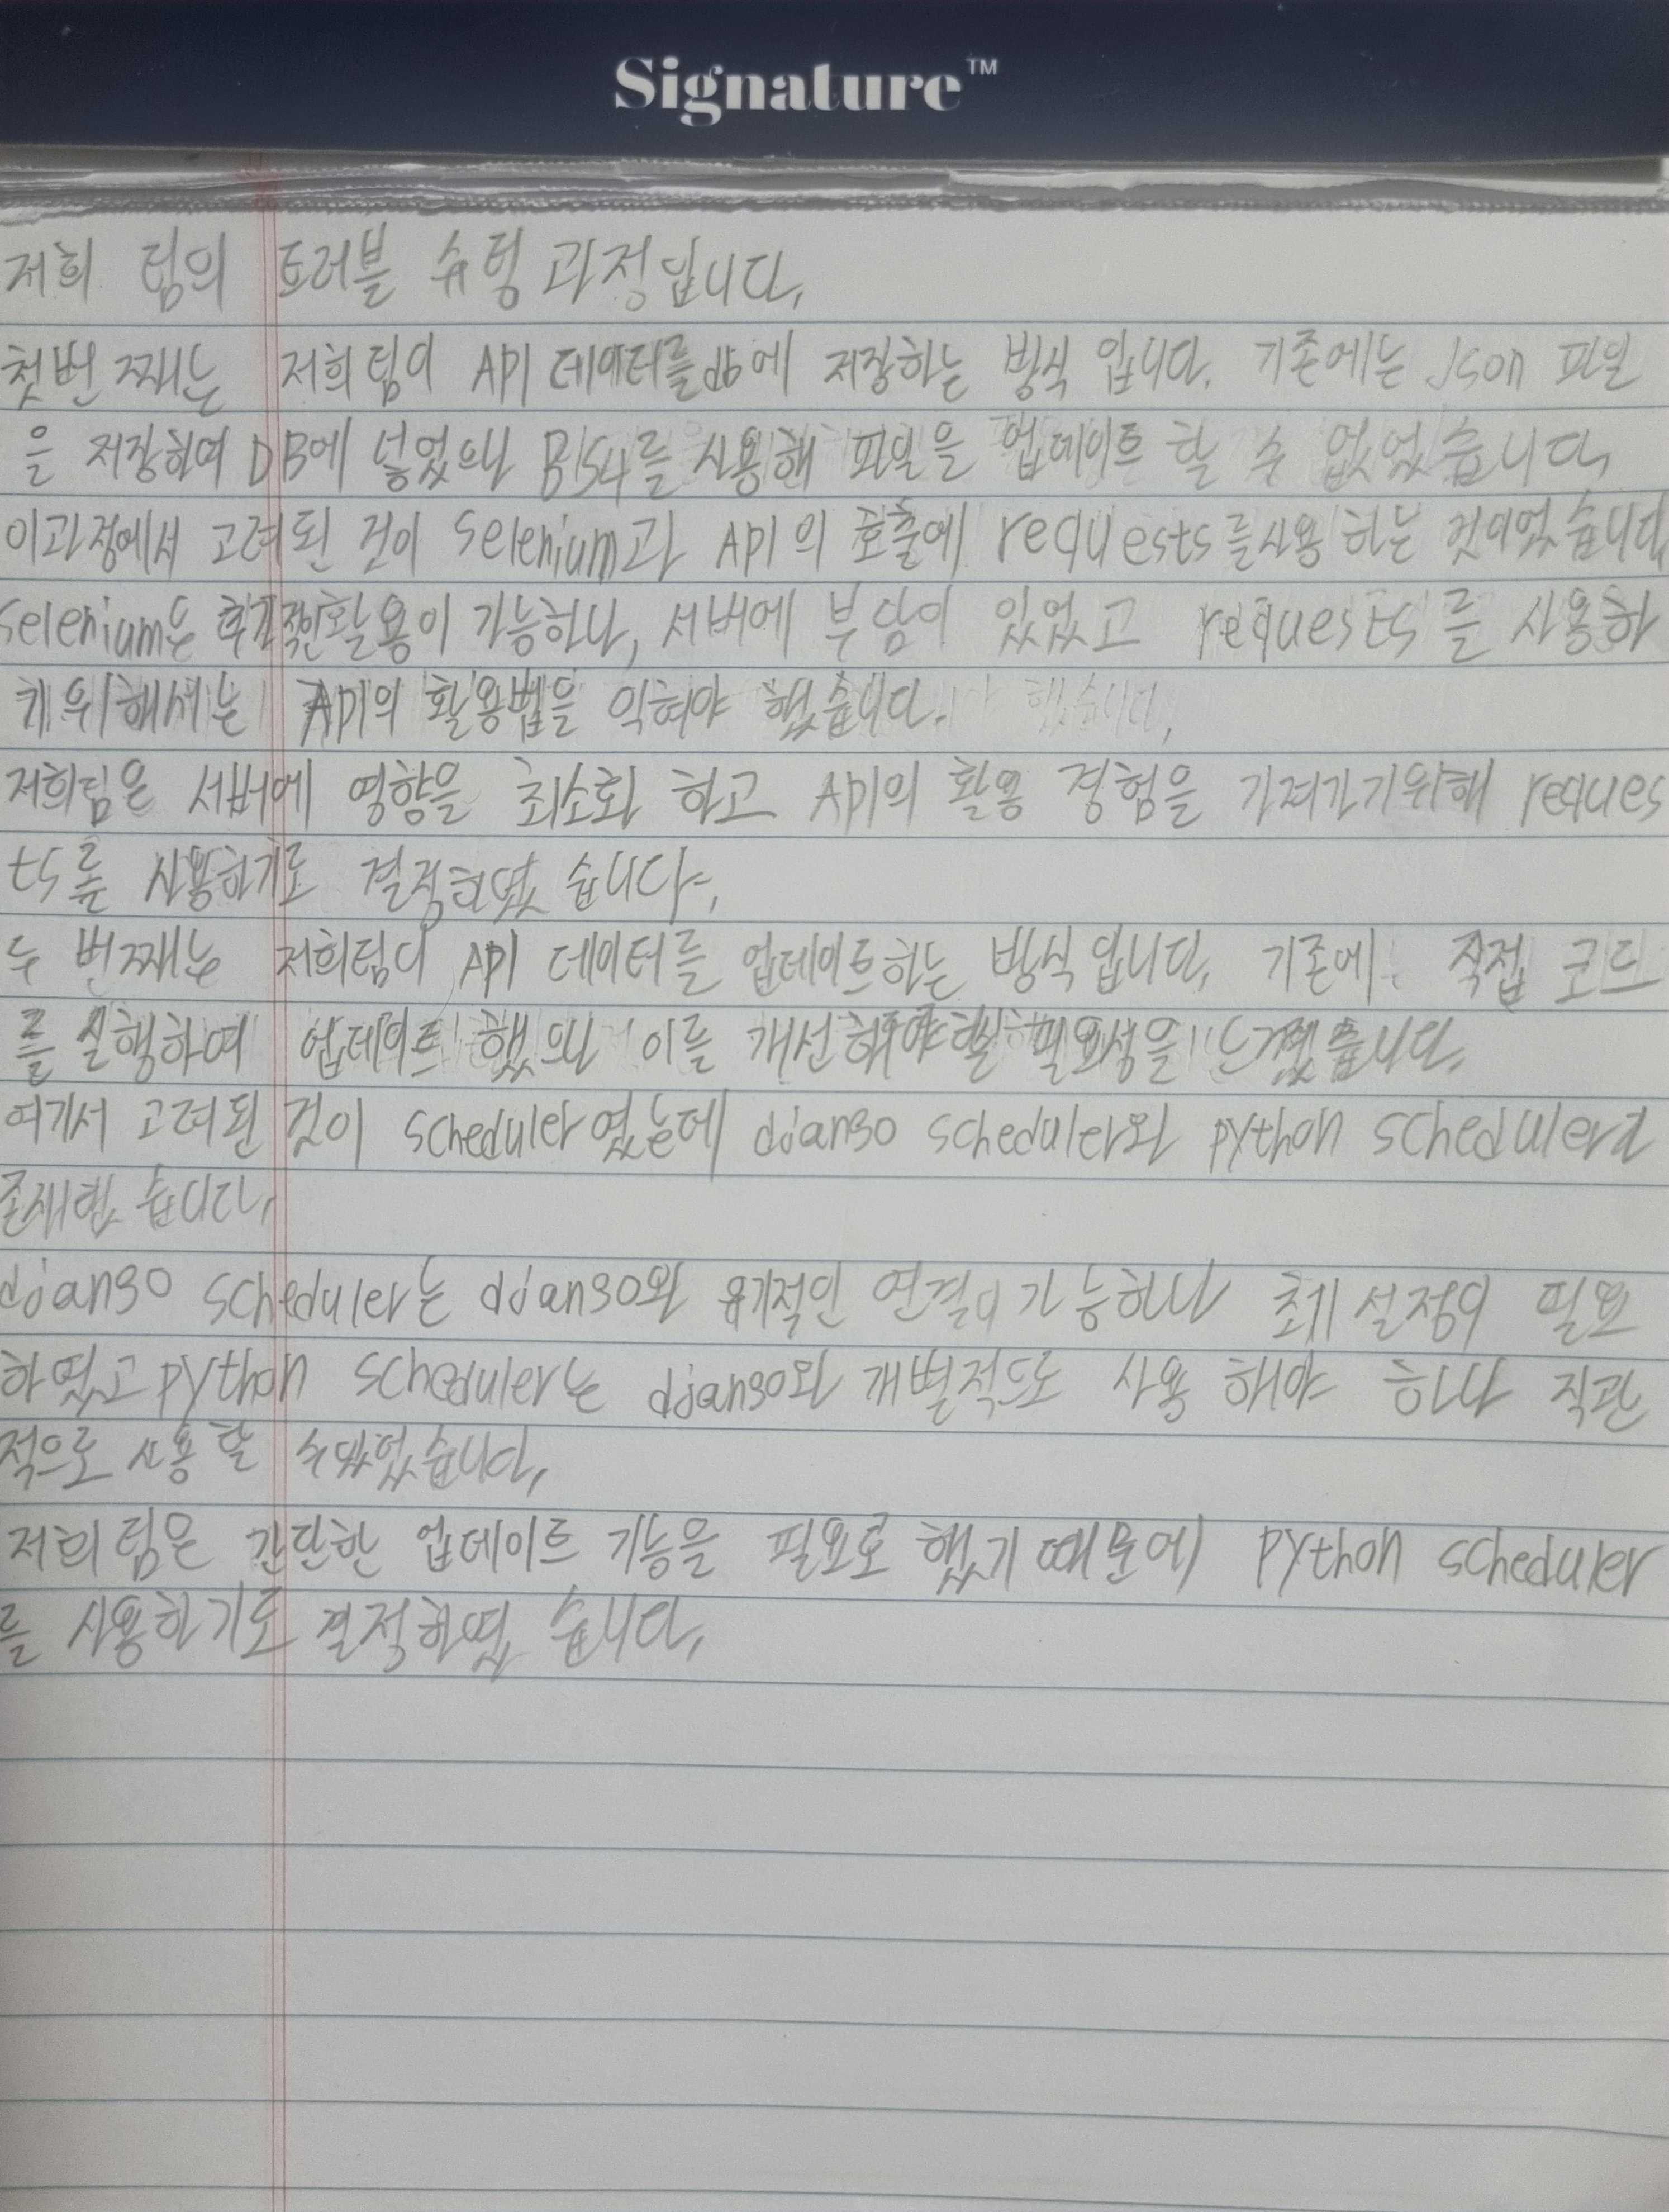 Signature™
저희 팀의 트러블 슈팅 과정입니다.
첫번째는 저희팀이 API 데이터를 db에 저장하는 방식 입니다. 기존에는 Json 파일
을 저장하여 DB에 넣었으나 BS4를 사용해 파일을 업데이트 할 수 없었습니다.
이과정에서 고려된 것이 Selenium과 API의 호출에 requests를사용 하는 것이었습니다
Selenium은 활용이 가능하나, 서버에 부담이 있었고 requests를 사용하
기위해서는 API의 활용법을 익혀야 했습니다.
저희팀은 서버에 영향을 최소화 하고 API의 활용 경험을 가져가기위해 reques
ts를 사용하기로 결정하였 습니다.
두 번째는 저희팀이 API 데이터를 업데이트하는 방식 입니다. 기존에 직접 코드
를 실행하여 업데이트 했으나 이를 개선해야할 필요성을 느꼈습니다.
여기서 고려된 것이 scheduler였는데 django scheduler와 python scheduler가
존재했 습니다.
django scheduler는 django와 유기적인 연결이 가능하나 초기 설정이 필요
하였고 python scheduler는 django와 개별적으로 사용 해야 하나 직관
적으로 사용할 수있었습니다.
저희 팀은 간단한 업데이트 기능을 필요로 했기 때문에 python scheduler
를 사용하기로 결정하였 습니다.